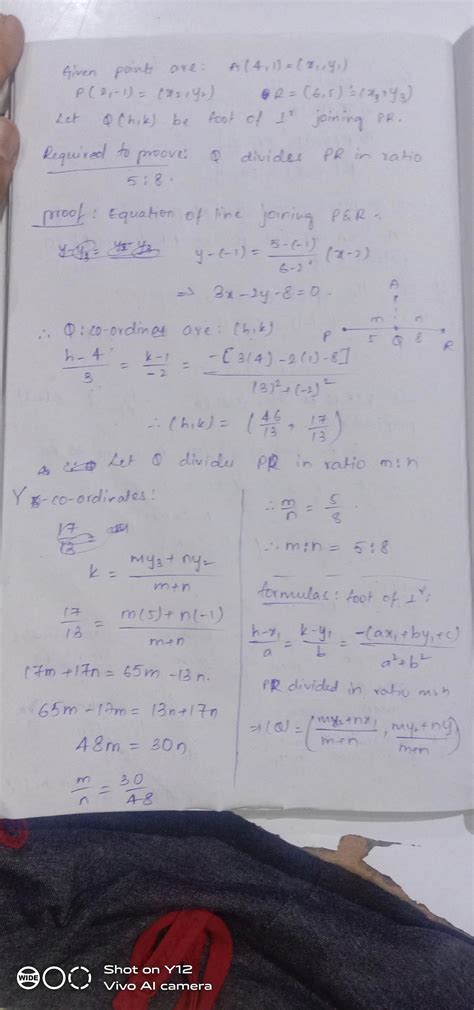 Given points are: A(4,1) = (x₁,y₁)
P(2,-1) = (x₂,y₂) R = (6,5) = (x₃,y₃)
Let Q(h,k) be foot of ⊥ʳ joining PR.
Required to proove: Q divides PR in ratio
5:8.
proof: Equation of line joining P&R.
y-(-1) = 5-(-1)/6-2 (x-2)
⇒ 3x-2y-8=0.
∴ Q: co-ordinates are: (h,k)
A
m n
P 5 Q 8 R
h-4/3 = k-1/-2 = -[3(4)-2(1)-8]/(3)²+(-2)²
∴ (h,k) = (46/13, 17/13)
Let Q divides PR in ratio m:n
Y co-ordinates:
17/13 =
k = my₃+ny₂/m+n
17/13 = m(5)+n(-1)/m+n
17m+17n = 65m-13n.
65m-17m = 13n+17n
48m = 30n
m/n = 30/48
∴ m/n = 5/8.
∴ m:n = 5:8
formulas: foot of ⊥ʳ:
h-x₁/a = k-y₁/b = -(ax₁+by₁+c)/a²+b²
PR divided in ratio m:n
⇒ (Q) = (mx₂+nx₁/m+n, my₂+ny/m+n)
WIDE
Shot on Y12
Vivo AI camera